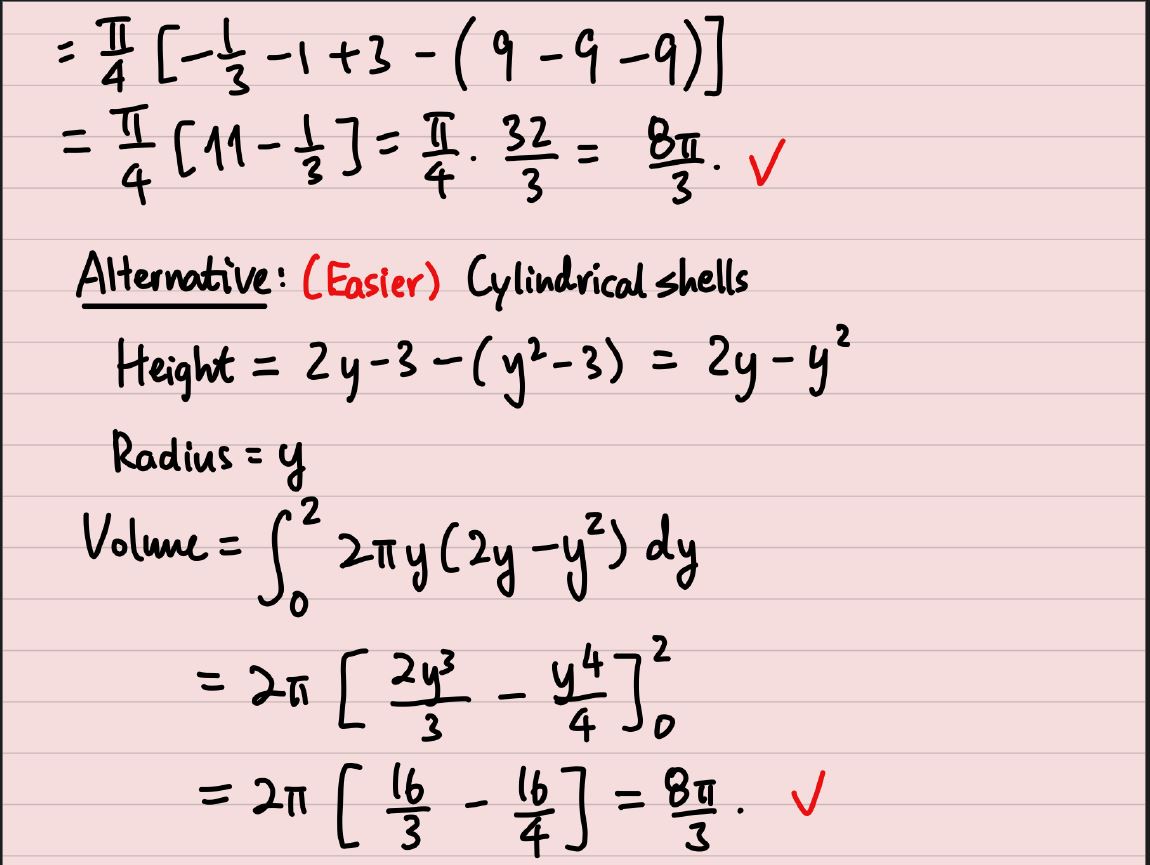 = π/4 [-1/3 - 1 + 3 - (9 - 9 - 9)]
= π/4 [11 - 1/3] = π/4 · 32/3 = 8π/3. ✓
Alternative: (Easier) Cylindrical shells
Height = 2y - 3 - (y² - 3) = 2y - y²
Radius = y
Volume = ∫₀² 2πy(2y - y²) dy
= 2π [2y³/3 - y⁴/4]₀²
= 2π [16/3 - 16/4] = 8π/3. ✓